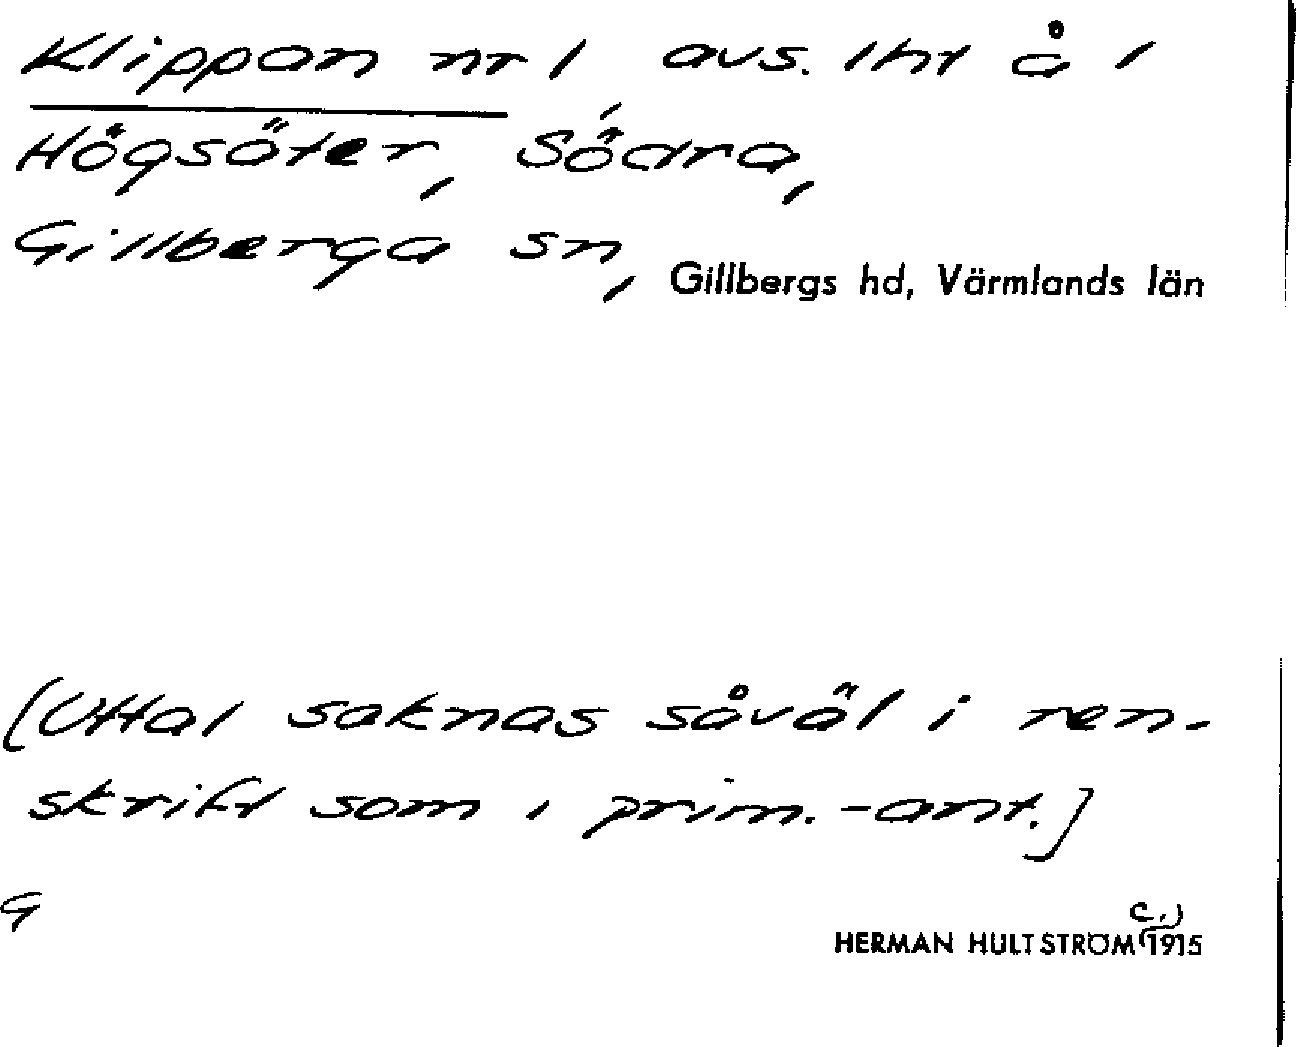 Klippan nr 1 avs. lht å i
Högsäter, Södra,
Gillberga sn,
Gillbergs hd, Värmlands län
[Uttal saknas såväl i ren-
skrift som i prim.-ant.]
G
HERMAN HULTSTRÖM (c.) 1915